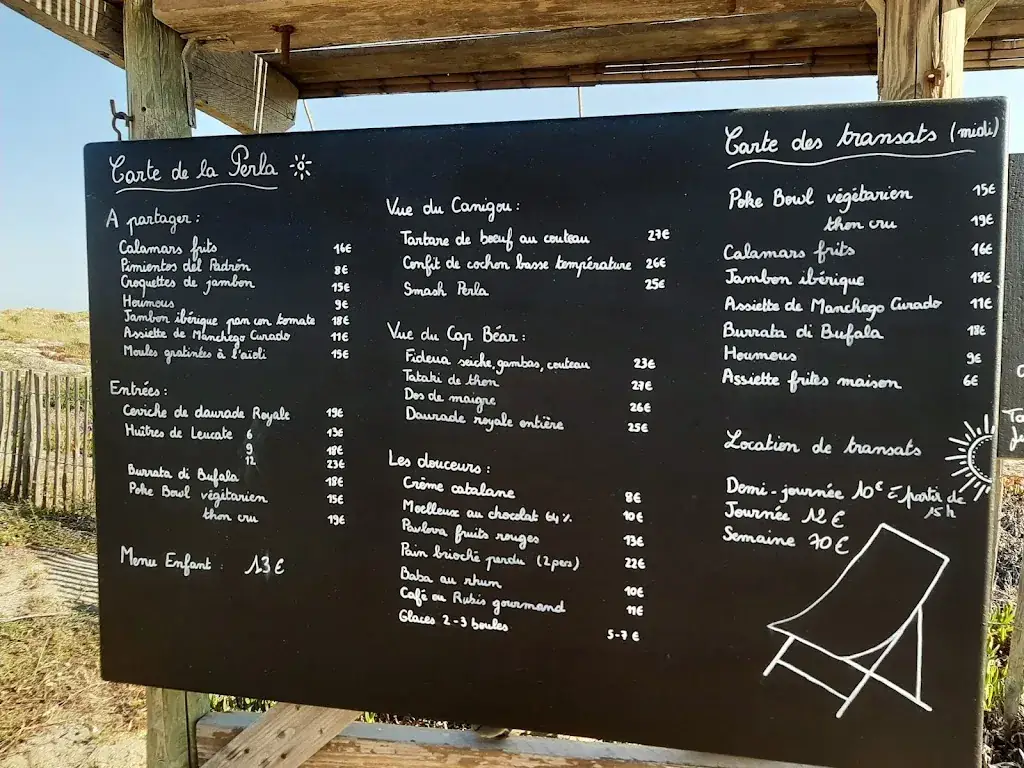 Carte de la Perla
A partager :
Calamars frits 16€
Pimientos del Padrón 8€
Croquettes de jambon 15€
Houmous 9€
Jambon ibérique pan con tomate 18€
Assiette de Manchego Curado 11€
Moules gratinées à l'aïoli 15€
Entrées :
Ceviche de daurade Royale 19€
Huîtres de Leucate 6 13€
9 18€
12 23€
Burrata di Bufala 18€
Poke Bowl végétarien 15€
thon cru 19€
Menu Enfant : 13€
Vue du Canigou :
Tartare de boeuf au couteau 27€
Confit de cochon basse température 26€
Smash Perla 25€
Vue du Cap Béar :
Fideua seiche, gambas, couteau 23€
Tataki de thon 27€
Dos de maigre 26€
Daurade royale entière 25€
Les douceurs :
Crème catalane 8€
Moelleux au chocolat 64% 10€
Pavlova fruits rouges 13€
Pain brioché perdu (2pers) 22€
Baba au rhum 10€
Café ou Rubis gourmand 11€
Glaces 2-3 boules 5-7€
Carte des transats (midi)
Poke Bowl végétarien 15€
thon cru 19€
Calamars frits 16€
Jambon ibérique 18€
Assiette de Manchego Curado 11€
Burrata di Bufala 18€
Houmous 9€
Assiette frites maison 6€
Location de transats
Demi-journée 10€ à partir de
15h
Journée 12€
Semaine 70€